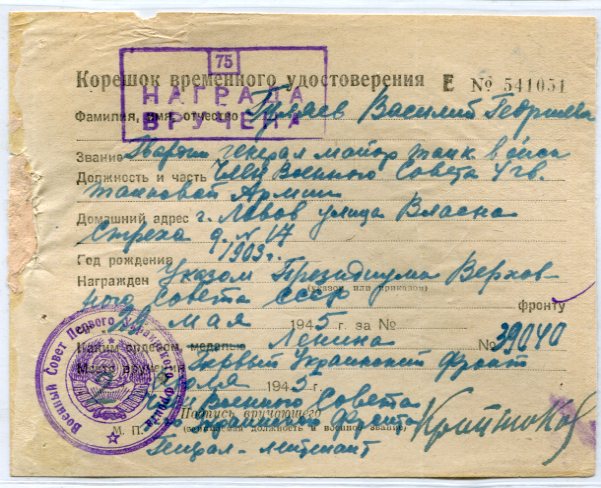 75
Корешок временного удостоверения Е № 541051
НАГРАДА
ВРУЧЕНА
Фамилия, имя, отчество Гуляев Василий Георгиев
Звание Гвардии генерал майор танк войск
Должность и часть Член Военного Совета 4 гв.
танковой Армии
Домашний адрес г. Львов улица Власна
Стреха д. N 17
Год рождения 1903 г.
Награжден Указом Президиума Верхов-
ного Совета СССР
(указом, или приказом) фронту
мая 1945 г. за №
Каким орденом, медалью Ленина № 39040
Место вручения Первый Украинский фронт
1945 г.
Член Военного Совета
Подпись вручающего
Украинского фронта
М. П. (записывается должность и военное звание)
Генерал-лейтенант
Военный Совет Первого Украинского Фронта